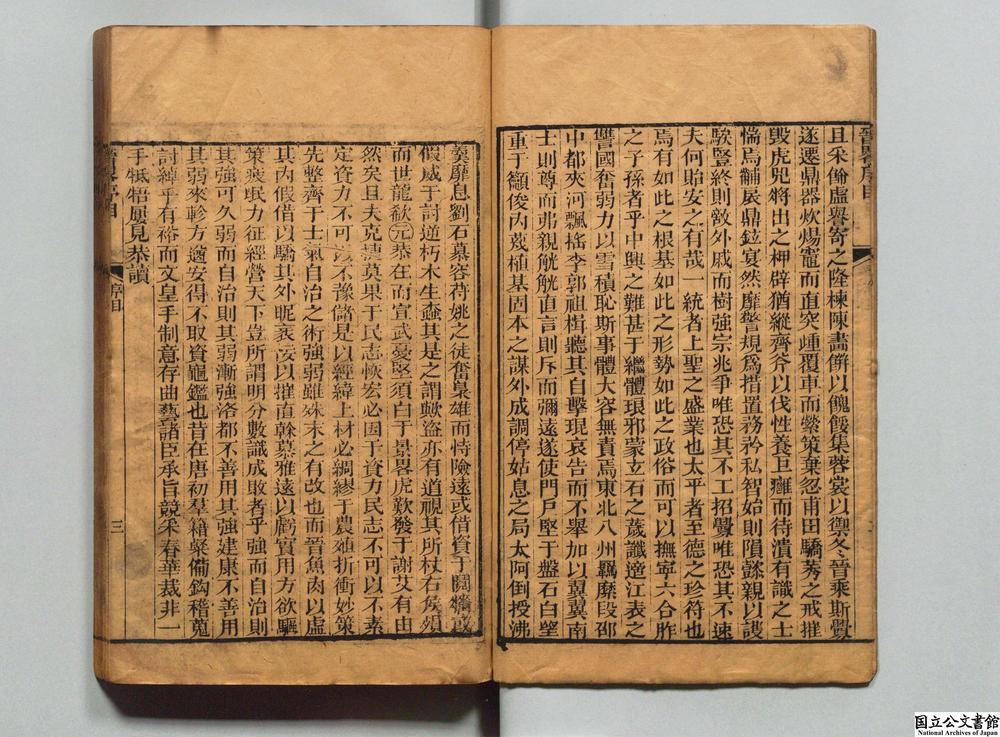 且采偷虛譽寄之隆棟陳畫餅以餽餒集蓉裳以禦冬晉乘斯釁
遂遷鼎器炊煬竈而直突煙覆車而縈策棄忽甫田驕莠之戒摧
毀虎兕將出之柙辟猶縱齊斧以伐性養巨癰而待潰有識之士
惴焉黼扆鼎鉉宴然靡警規爲措置務衿私智始則隕懿親以謏
騃豎終則敵外戚而樹強宗兆爭唯恐其不工招釁唯恐其不速
夫何貽安之有哉一統者上聖之盛業也太平者至德之珍符也
焉有如此之根基如此之形勢如此之政俗而可以撫寧六合胙
之子孫者乎中興之難甚于繼體琅邪蒙立石之葴讖遵江表之
讐國奮弱力以雪積恥斯事體大容無責焉東北八州羈縻段邵
中都夾河飄搖李郭祖楫聽其自擊琨哀告而不舉加以翼翼南
士則尊而弗親觥觥直言則斥而彌遠遂使門戶堅于盤石白望
重于顓俊內蔑植基固本之謀外成調停姑息之局太阿倒授沸
羹靡息劉石慕容苻姚之徒奮梟雄而恃險遠或借資于鬭牆或
假威于討逆朽木生蠹其是之謂歟盜亦有道視其所杖右侯殞
而世龍歎元恭在而宣武憂堅須白于景畧虎歎發于謝艾有由
然矣且夫克捷莫果于民志恢宏必固于資力民志不可以不素
定資力不可以不豫儲是以經緯上材必綢繆于農殖折衝妙策
先整齊于士氣自治之術強弱雖殊未之有改也而晉魚肉以虛
其內假借以驕其外昵衺妄以摧直幹慕雅遠以虧實用方欲驅
策疲氓力征經營天下豈所謂明分數識成敗者乎強而自治則
其強可久弱而自治則其弱漸強洛都不善用其強建康不善用
其弱來軫方遒安得不取資龜鑑也昔在唐初羣籍粲備鉤稽蒐
討綽乎有裕而文皇手制意存曲藝諸臣承旨競采春華裁非一
手牴牾屢見恭讀
序目
三
国立公文書館
National Archives of Japan